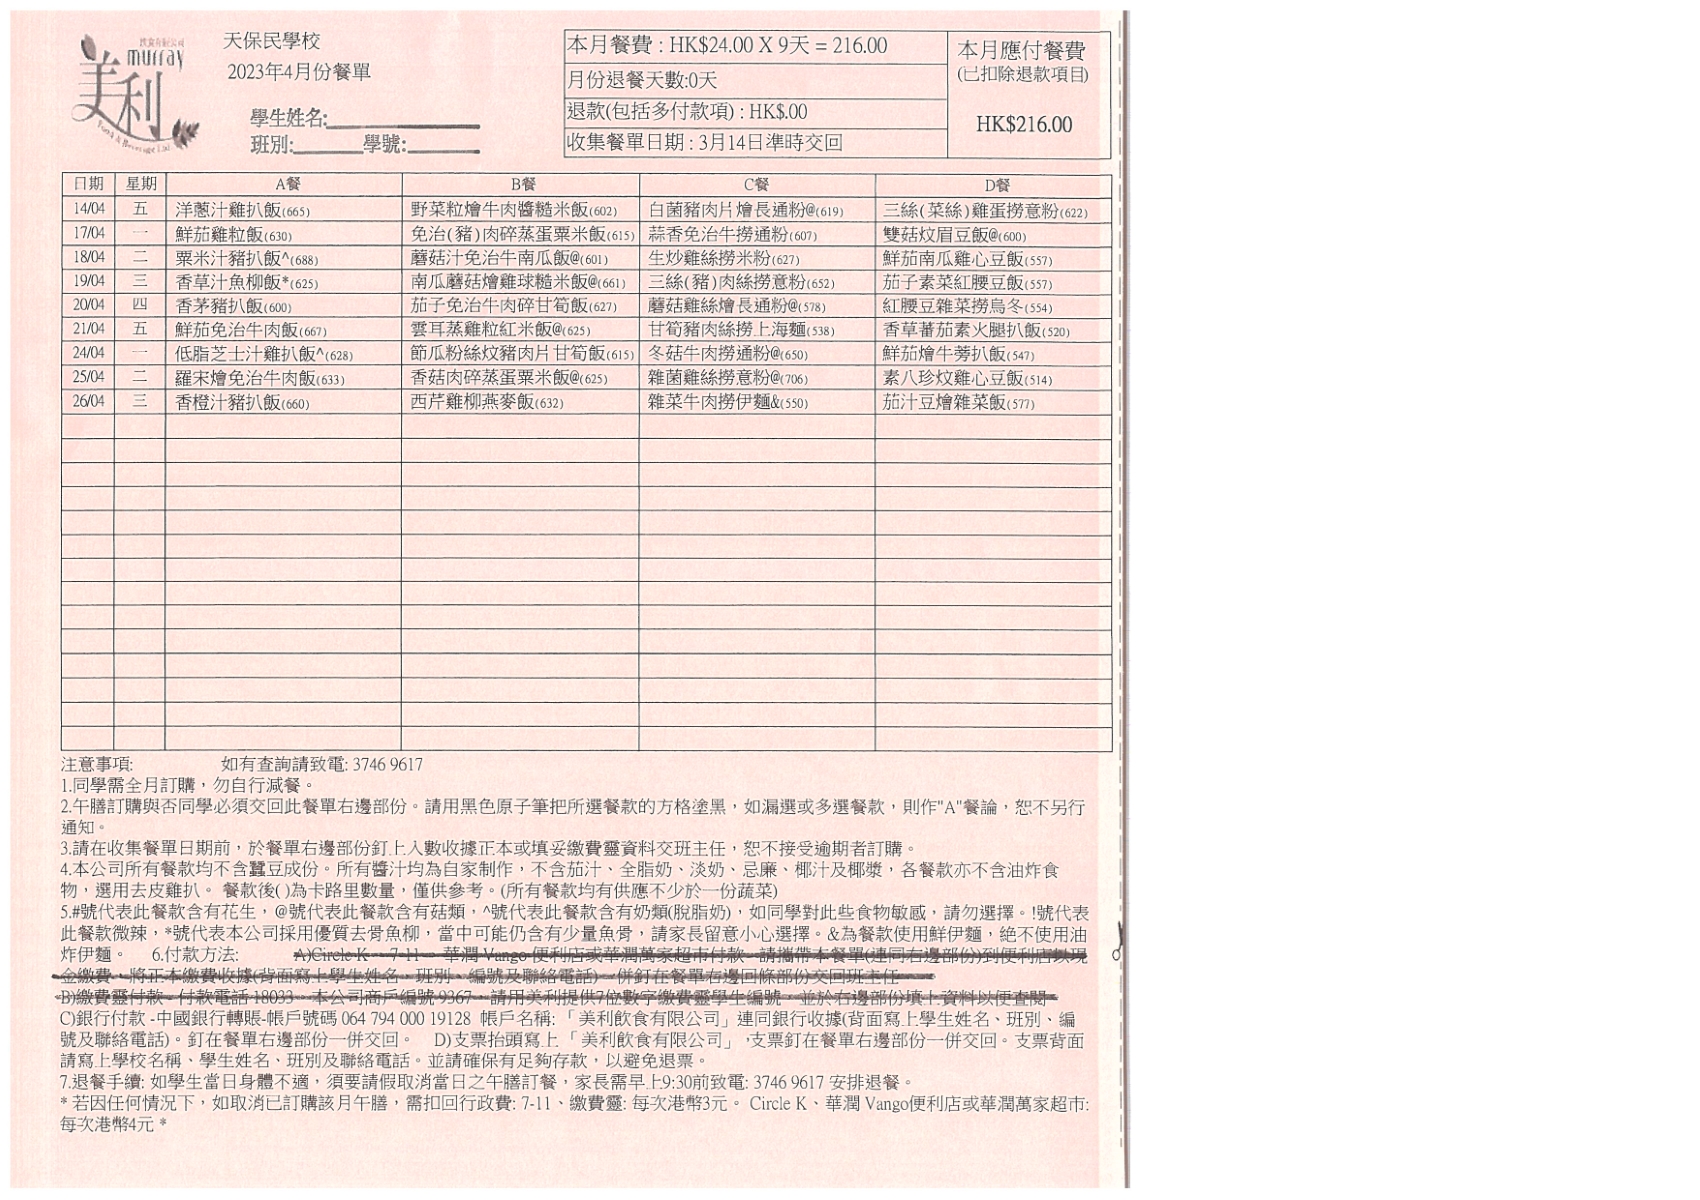 飲食有限公司
murray
美利
Food & Beverage Ltd
天保民學校
2023年4月份餐單
學生姓名:
班別: 學號:
本月餐費 : HK$24.00 X 9天 = 216.00
月份退餐天數:0天
退款(包括多付款項) : HK$.00
收集餐單日期 : 3月14日準時交回
本月應付餐費
(已扣除退款項目)
HK$216.00
日期 星期 A餐 B餐 C餐 D餐
14/04 五 洋蔥汁雞扒飯(665) 野菜粒燴牛肉醬糙米飯(602) 白菌豬肉片燴長通粉@(619) 三絲(菜絲)雞蛋撈意粉(622)
17/04 一 鮮茄雞粒飯(630) 免治(豬)肉碎蒸蛋粟米飯(615) 蒜香免治牛撈通粉(607) 雙菇炆眉豆飯@(600)
18/04 二 粟米汁豬扒飯^(688) 蘑菇汁免治牛南瓜飯@(601) 生炒雞絲撈米粉(627) 鮮茄南瓜雞心豆飯(557)
19/04 三 香草汁魚柳飯*(625) 南瓜蘑菇燴雞球糙米飯@(661) 三絲(豬)肉絲撈意粉(652) 茄子素菜紅腰豆飯(557)
20/04 四 香茅豬扒飯(600) 茄子免治牛肉碎甘筍飯(627) 蘑菇雞絲燴長通粉@(578) 紅腰豆雜菜撈烏冬(554)
21/04 五 鮮茄免治牛肉飯(667) 雲耳蒸雞粒紅米飯@(625) 甘筍豬肉絲撈上海麵(538) 香草蕃茄素火腿扒飯(520)
24/04 一 低脂芝士汁雞扒飯^(628) 節瓜粉絲炆豬肉片甘筍飯(615) 冬菇牛肉撈通粉@(650) 鮮茄燴牛蒡扒飯(547)
25/04 二 羅宋燴免治牛肉飯(633) 香菇肉碎蒸蛋粟米飯@(625) 雜菌雞絲撈意粉@(706) 素八珍炆雞心豆飯(514)
26/04 三 香橙汁豬扒飯(660) 西芹雞柳燕麥飯(632) 雜菜牛肉撈伊麵&(550) 茄汁豆燴雜菜飯(577)
注意事項: 如有查詢請致電: 3746 9617
1.同學需全月訂購，勿自行減餐。
2.午膳訂購與否同學必須交回此餐單右邊部份。請用黑色原子筆把所選餐款的方格塗黑，如漏選或多選餐款，則作"A"餐論，恕不另行
通知。
3.請在收集餐單日期前，於餐單右邊部份釘上入數收據正本或填妥繳費靈資料交班主任，恕不接受逾期者訂購。
4.本公司所有餐款均不含蠶豆成份。所有醬汁均為自家制作，不含茄汁、全脂奶、淡奶、忌廉、椰汁及椰漿，各餐款亦不含油炸食
物，選用去皮雞扒。 餐款後( )為卡路里數量，僅供參考。(所有餐款均有供應不少於一份蔬菜)
5.#號代表此餐款含有花生，@號代表此餐款含有菇類，^號代表此餐款含有奶類(脫脂奶)，如同學對此些食物敏感，請勿選擇。!號代表
此餐款微辣，*號代表本公司採用優質去骨魚柳，當中可能仍含有少量魚骨，請家長留意小心選擇。&為餐款使用鮮伊麵，絕不使用油
炸伊麵。 6.付款方法: A)Circle K、7-11、華潤 Vango 便利店或華潤萬家超市付款，請攜帶本餐單(連同右邊部份)到便利店以現
金繳費，將正本繳費收據(背面寫上學生姓名、班別、編號及聯絡電話)一併釘在餐單右邊回條部份交回班主任
B)繳費靈付款，付款電話 18033，本公司商戶編號 9367，請用美利提供7位數字繳費靈學生編號，並於右邊部份填上資料以便查閱
C)銀行付款 -中國銀行轉賬-帳戶號碼 064 794 000 19128 帳戶名稱: 「美利飲食有限公司」連同銀行收據(背面寫上學生姓名、班別、編
號及聯絡電話)。釘在餐單右邊部份一併交回。 D)支票抬頭寫上「美利飲食有限公司」,支票釘在餐單右邊部份一併交回。支票背面
請寫上學校名稱、學生姓名、班別及聯絡電話。並請確保有足夠存款，以避免退票。
7.退餐手續: 如學生當日身體不適，須要請假取消當日之午膳訂餐，家長需早上9:30前致電: 3746 9617 安排退餐。
* 若因任何情況下，如取消已訂購該月午膳，需扣回行政費: 7-11、繳費靈: 每次港幣3元。 Circle K、華潤 Vango便利店或華潤萬家超市:
每次港幣4元 *